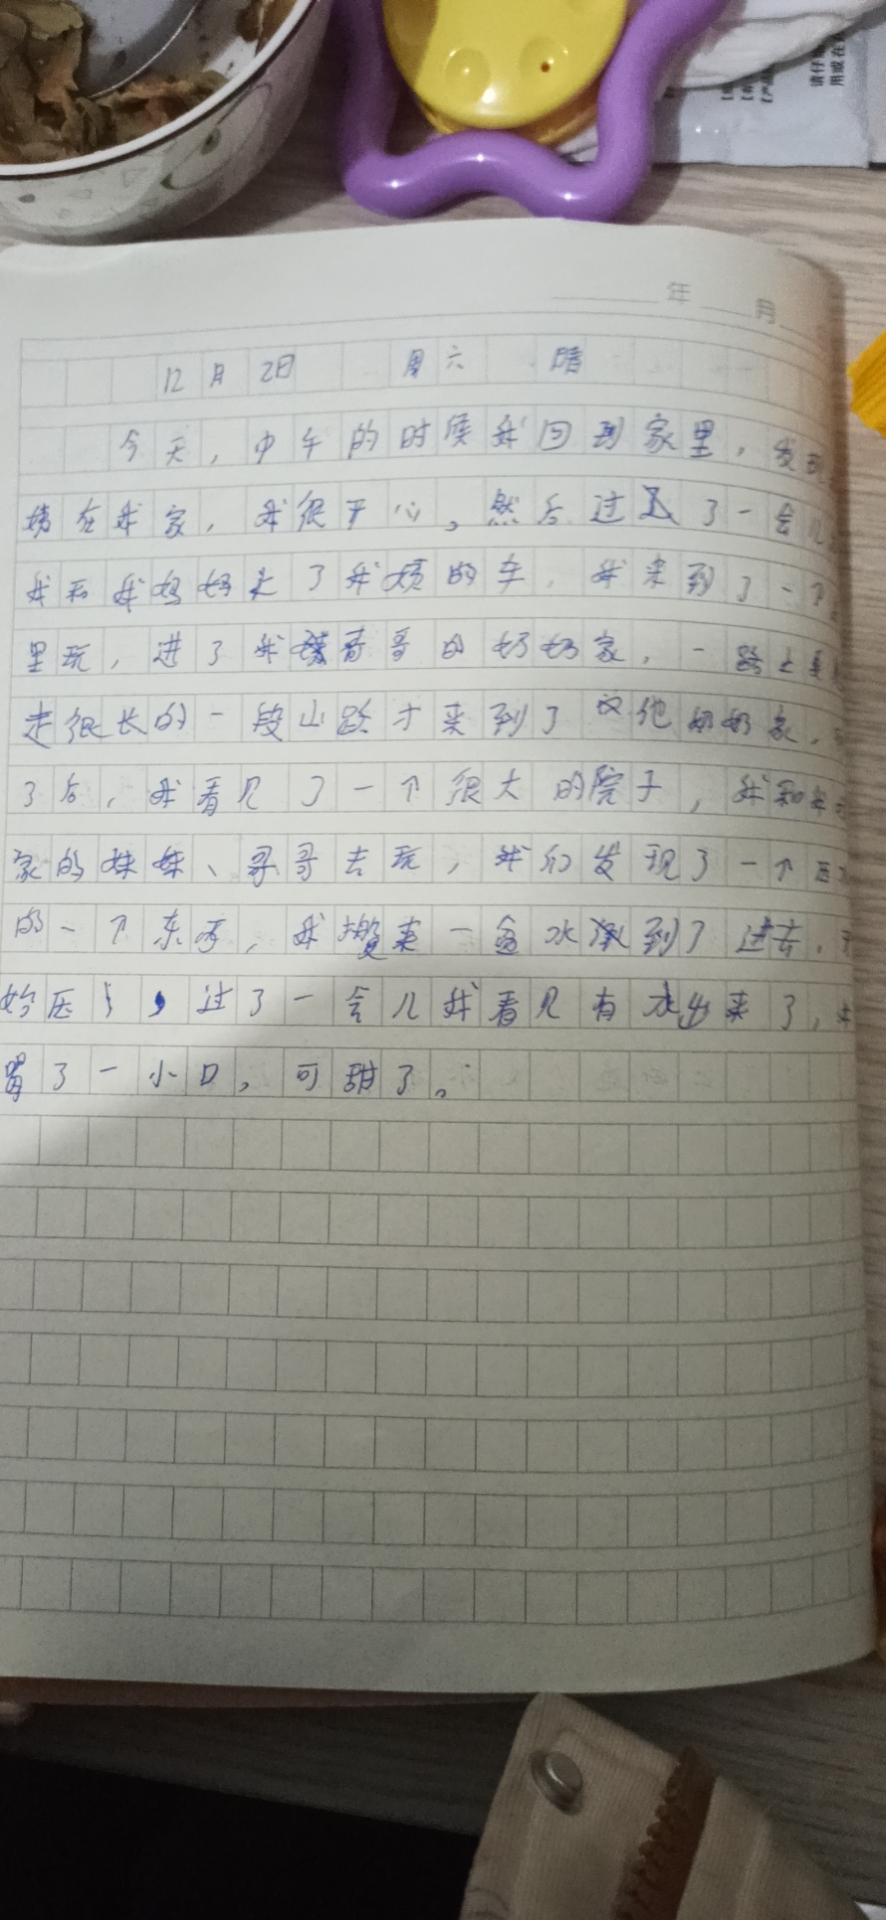 请仔
用或在
年 月
12月2日 周六 晴
今天,中午的时候我回到家里,发现
姨在我家,我很开心。然后过了一会儿
我和我妈妈上了我姨的车,我来到了一个
里玩,进了我哥哥的奶奶家,一路上
走很长的一段山路才来到了他奶奶家,
了后,我看见了一个很大的院子,我和
家的妹妹、哥哥去玩,我们发现了一个压
的一个东西,我搬来一盆水到了进去,
始压,过了一会儿我看见有水出来了,
了一小口,可甜了。